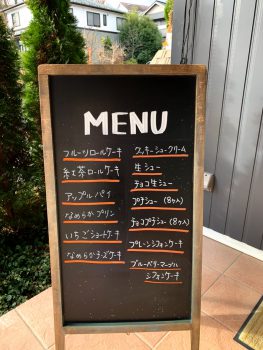 MENU
フルーツロールケーキ
紅茶ロールケーキ
アップルパイ
なめらかプリン
いちごショートケーキ
なめらかチーズケーキ
クッキーシュークリーム
生シュー
チョコ生シュー
プチシュー(8ヶ入)
チョコプチシュー(8ヶ入)
プレーンシフォンケーキ
ブルーベリーマーブル
シフォンケーキ